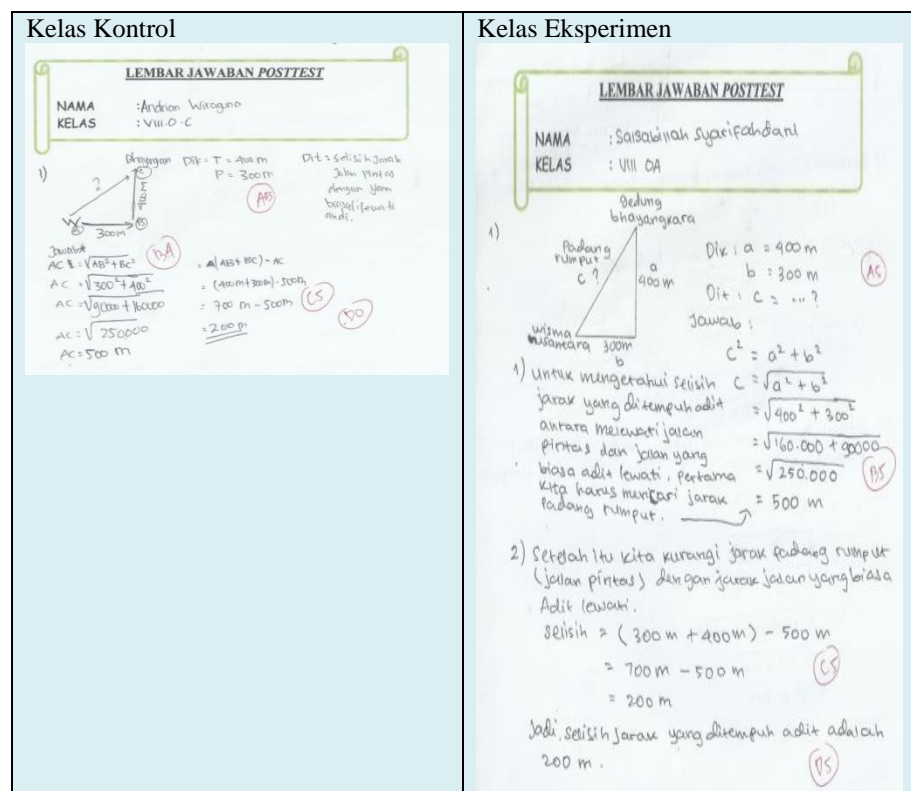 Kelas Kontrol
LEMBAR JAWABAN POSTTEST
NAMA : Andrian Wiraguna
KELAS : VIII.O-C
1)
?
400m
W
300m
Dik = T = 400m
P = 300m
Dit = selisih Jarak
Jalan pintas
dengan yang
andi.
A5
Jawab
AC = √AB² + BC²
B4
AC = √300² + 400²
AC = √90000 + 160000
AC = √250000
AC = 500 m
= (AB + BC) - AC
= (400m + 300m) - 500m
= 700 m - 500m
= 200 m
C5
D0
Kelas Eksperimen
LEMBAR JAWABAN POSTTEST
NAMA : Salsabillah Syarifahdani
KELAS : VIII OA
1)
Gedung
bhayangkara
Padang
rumput
C ?
a
400m
wisma
nusantara
300m
b
Dik : a = 400 m
b = 300 m
Dit : c = ... ?
A5
Jawab :
c² = a² + b²
c = √a² + b²
= √400² + 300²
= √160.000 + 90000
= √250.000
= 500 m
B5
1) untuk mengetahui selisih
jarak yang ditempuh adit
antara melewati jalan
pintas dan jalan yang
biasa adit lewati, pertama
kita harus mencari jarak
Padang rumput.
2) Setelah itu kita kurangi jarak padang rumput
(jalan pintas) dengan jarak jalan yang biasa
Adit lewati.
selisih = (300 m + 400m) - 500 m
= 700 m - 500 m
= 200 m
C5
Jadi, selisih jarak yang ditempuh adit adalah
200 m.
D5